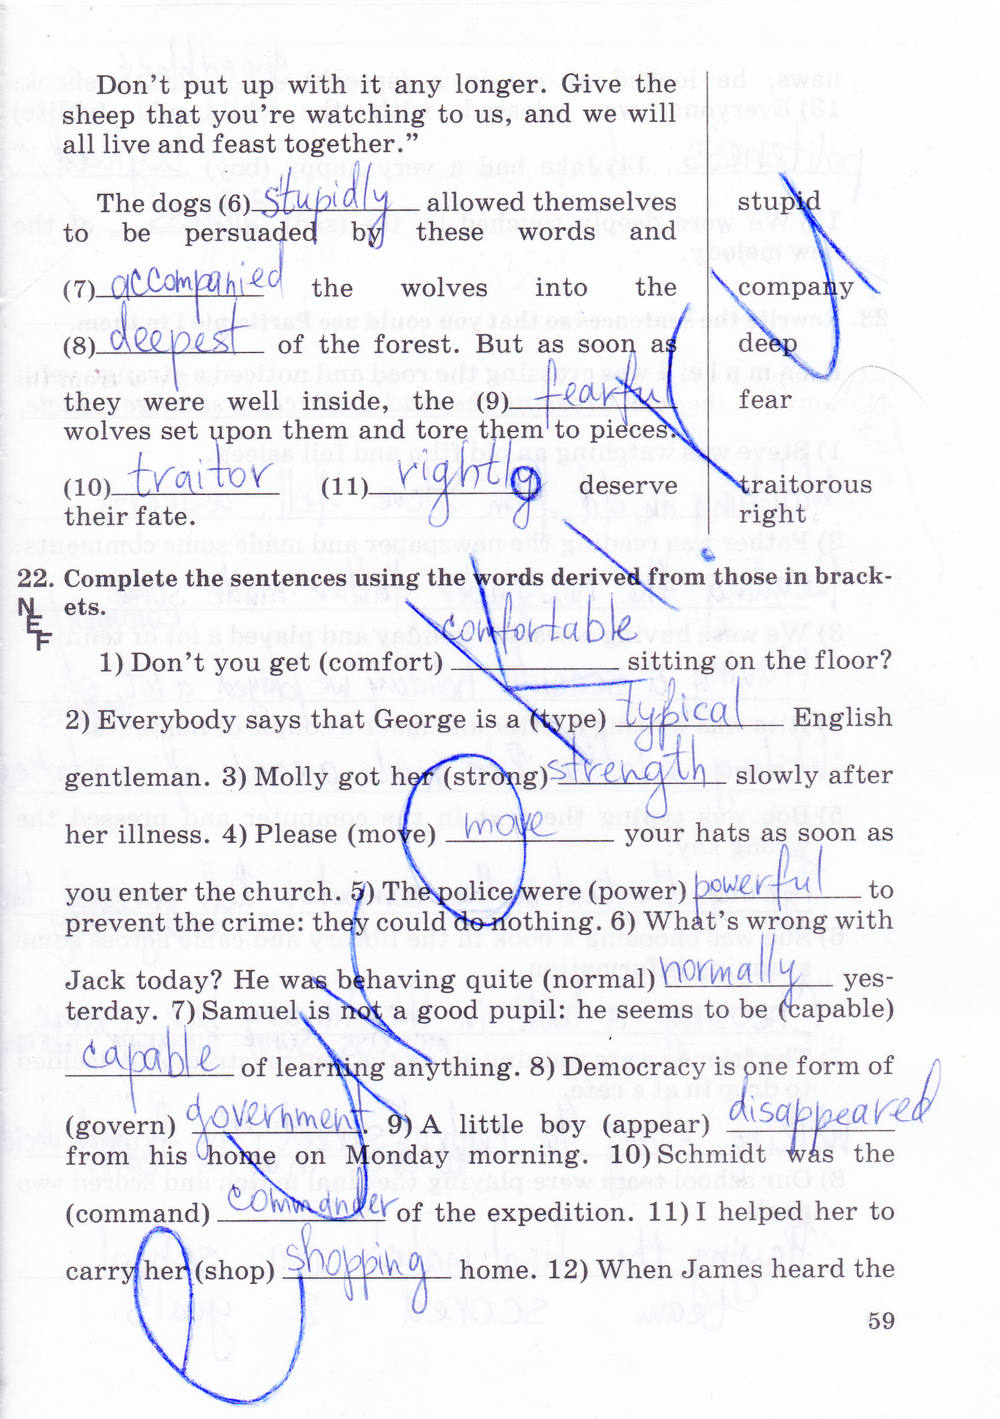 Don't put up with it any longer. Give the
sheep that you're watching to us, and we will
all live and feast together."
The dogs (6) stupidly allowed themselves stupid
to be persuaded by these words and
(7) accompanied the wolves into the company
(8) deepest of the forest. But as soon as deep
they were well inside, the (9) fearful fear
wolves set upon them and tore them to pieces.
(10) traitor (11) rightly deserve traitorous
their fate. right
22. Complete the sentences using the words derived from those in brack-
NEF ets.
1) Don't you get (comfort) comfortable sitting on the floor?
2) Everybody says that George is a (type) typical English
gentleman. 3) Molly got her (strong) strength slowly after
her illness. 4) Please (move) move your hats as soon as
you enter the church. 5) The police were (power) powerful to
prevent the crime: they could do nothing. 6) What's wrong with
Jack today? He was behaving quite (normal) normally yes-
terday. 7) Samuel is not a good pupil; he seems to be (capable)
capable of learning anything. 8) Democracy is one form of
(govern) government. 9) A little boy (appear) disappeared
from his home on Monday morning. 10) Schmidt was the
(command) commander of the expedition. 11) I helped her to
carry her (shop) shopping home. 12) When James heard the
59